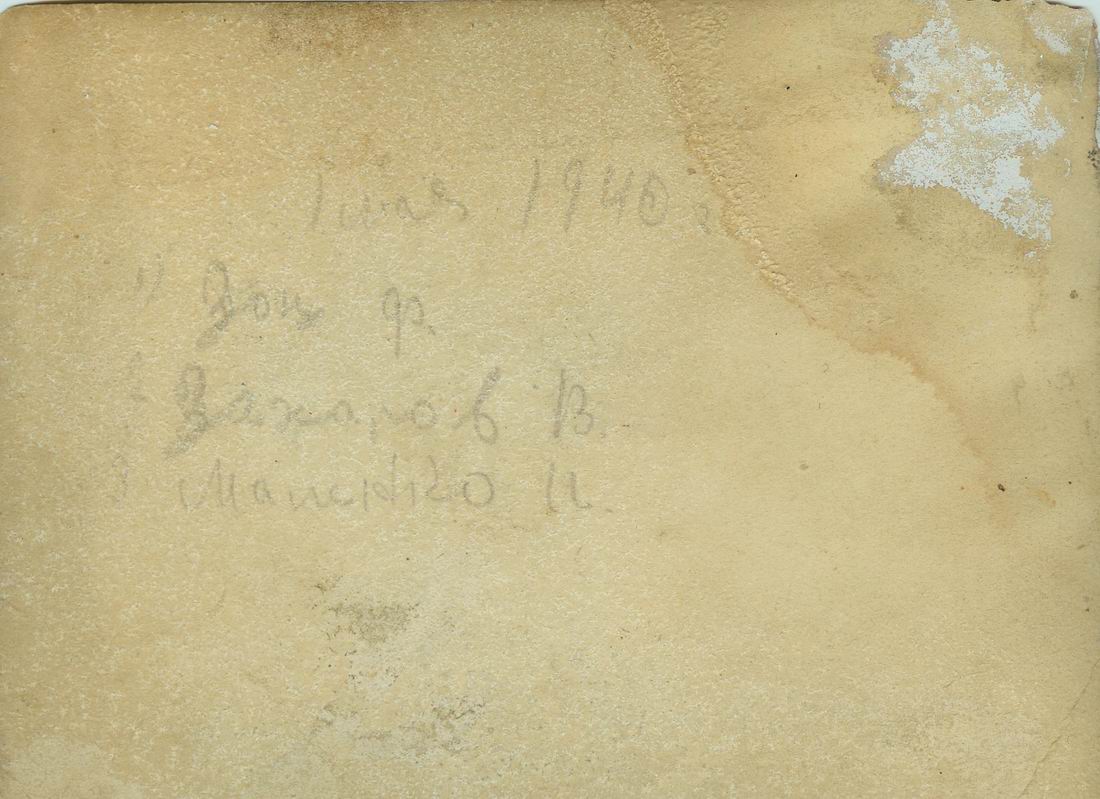 1 мая 1940 г
1) Зоц Ф.
2 Захаров В.
3 Маненко И.